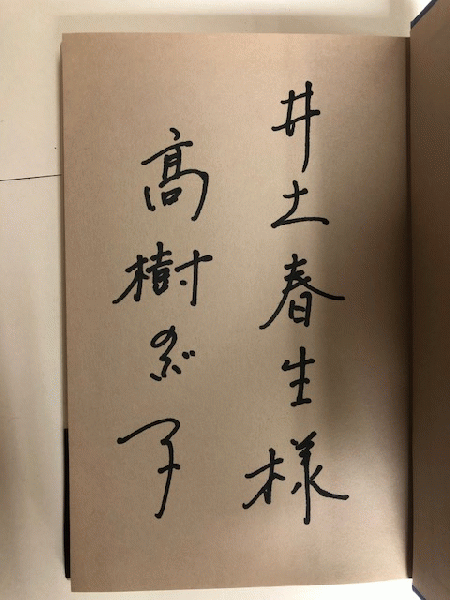 井土春生様
髙樹のぶ子